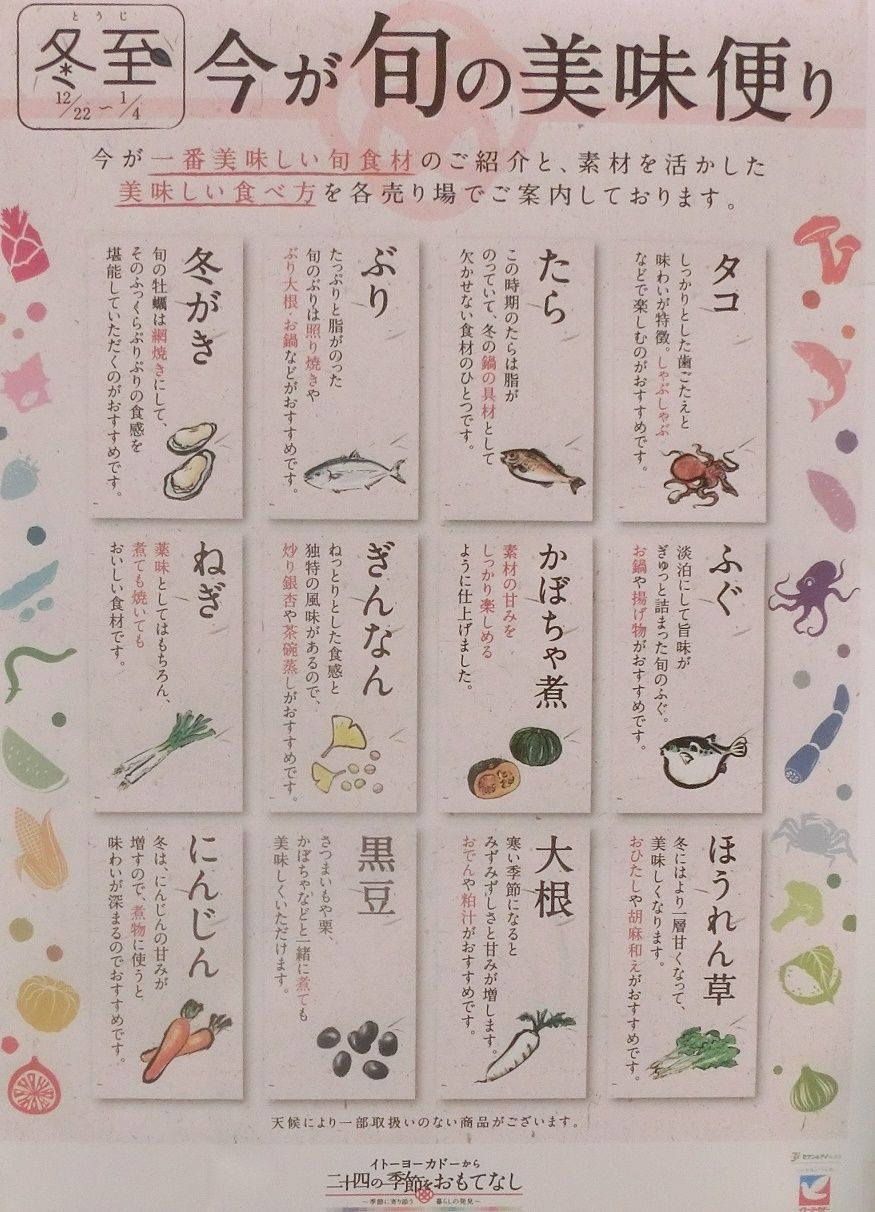 とうじ
冬至
12/22～1/4
今が旬の美味便り
今が一番美味しい旬食材のご紹介と、素材を活かした
美味しい食べ方を各売り場でご案内しております。
タコ
しっかりとした歯ごたえと
味わいが特徴。しゃぶしゃぶ
などで楽しむのがおすすめです。
たら
この時期のたらは脂が
のっていて、冬の鍋の具材として
欠かせない食材のひとつです。
ぶり
たっぷりと脂がのった
旬のぶりは照り焼きや
ぶり大根・お鍋などがおすすめです。
冬がき
旬の牡蠣は網焼きにして、
そのふっくらぷりぷりの食感を
堪能していただくのがおすすめです。
ふぐ
淡泊にして旨味が
ぎゅっと詰まった旬のふぐ。
お鍋や揚げ物がおすすめです。
かぼちゃ煮
素材の甘みを
しっかり楽しめる
ように仕上げました。
ぎんなん
ねっとりとした食感と
独特の風味があるので、
炒り銀杏や茶碗蒸しがおすすめです。
ねぎ
薬味としてはもちろん、
煮ても焼いても
おいしい食材です。
ほうれん草
冬にはより一層甘くなって、
美味しくなります。
おひたしや胡麻和えがおすすめです。
大根
寒い季節になると
みずみずしさと甘みが増します。
おでんや粕汁がおすすめです。
黒豆
さつまいもや栗、
かぼちゃなどと一緒に煮ても
美味しくいただけます。
にんじん
冬は、にんじんの甘みが
増すので、煮物に使うと
味わいが深まるのでおすすめです。
天候により一部取扱いのない商品がございます。
イトーヨーカドーから
二十四の季節をおもてなし
～季節に寄り添う 暮らしの発見～
イトーヨーカドー